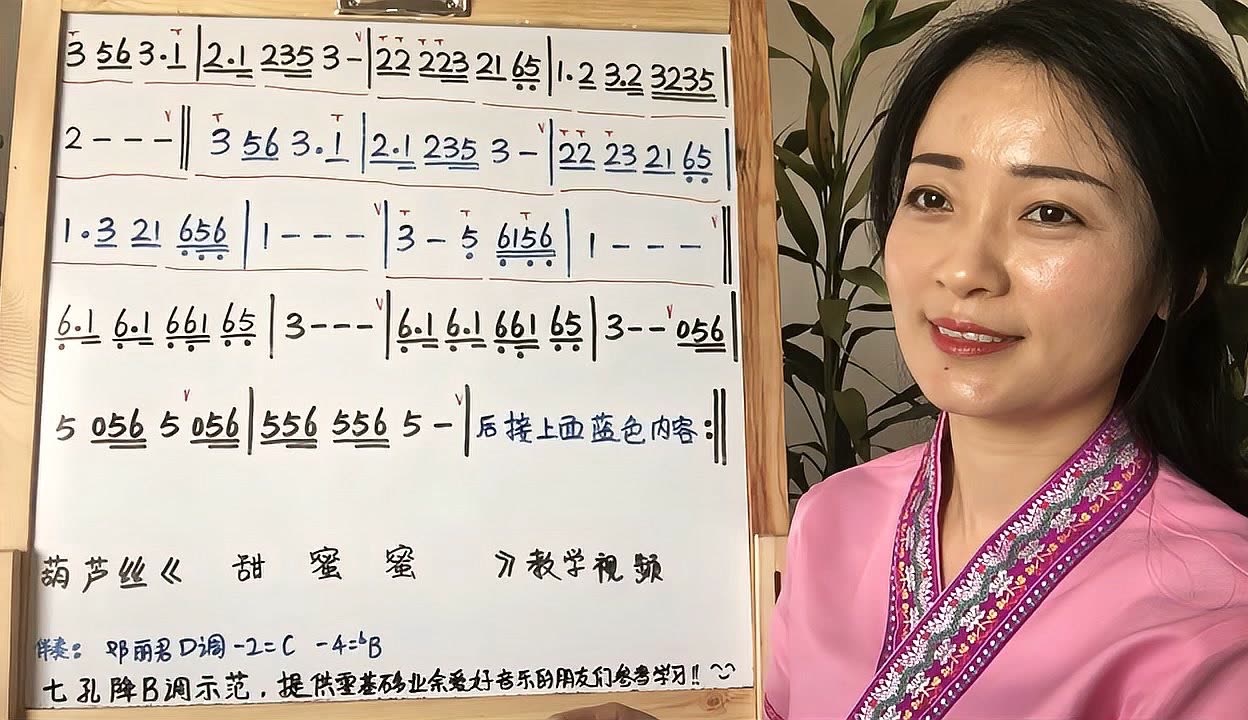 3 56 3·1 | 2·1 235 3 - | 22 223 21 65 | 1·2 3·2 3235 |
2 - - - || 3 56 3·1 | 2·1 235 3 - | 22 23 21 65 |
1·3 21 656 | 1 - - - | 3 - 5 6156 | 1 - - - ||
6·1 6·1 661 65 | 3 - - - | 6·1 6·1 661 65 | 3 - - 056 |
5 056 5 056 | 556 556 5 - | 后接上面蓝色内容 :||
葫芦丝《 甜 蜜 蜜 》教学视频
伴奏: 邓丽君D调 -2=C -4=ᵇB
七孔降B调示范，提供零基础业余爱好音乐的朋友们参考学习!!